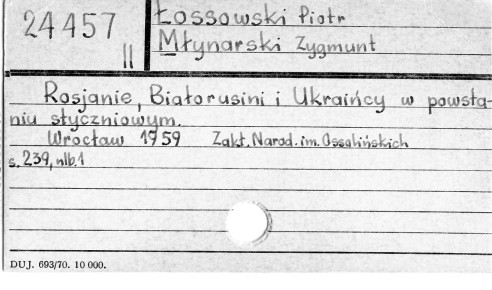 24457
II
Łossowski Piotr
Młynarski Zygmunt
Rosjanie, Białorusini i Ukraińcy w powsta-
niu styczniowym.
Wrocław 1959 Zakł. Narod. im. Ossolińskich
s. 239, nlb. 1
DUJ. 693/70. 10 000.